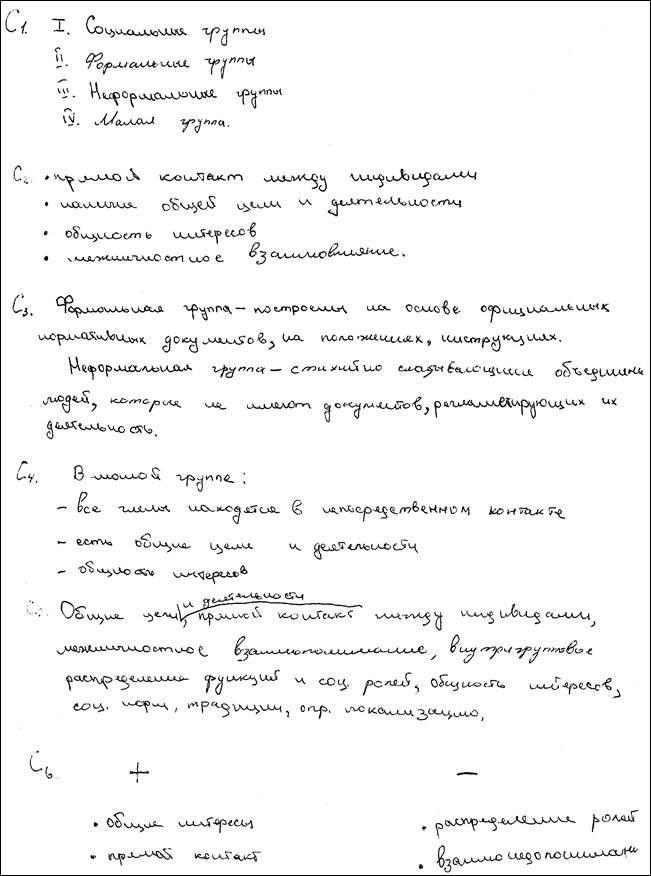 С1. I. Социальные группы
II. Формальные группы
III. Неформальные группы
IV. Малая группа.
С2. • прямой контакт между индивидами
• наличие общей цели и деятельности
• общность интересов
• межличностное взаимовлияние.
С3. Формальная группа – построены на основе официальных
нормативных документов, на положениях, инструкциях.
Неформальная группа – стихийно складывающиеся объединения
людей, которые не имеют документов, регламентирующих их
деятельность.
С4. В малой группе:
– все члены находятся в непосредственном контакте
– есть общие цели и деятельности
– общность интересов
и деятельности
С5 Общие цели, прямой контакт между индивидами,
межличностное взаимопонимание, внутригрупповое
распределение функций и соц. ролей, общность интересов,
соц. норм, традиции, опр. локализацию,
С6 + –
• общие интересы • распределение ролей
• прямой контакт • взаимонедопонимание